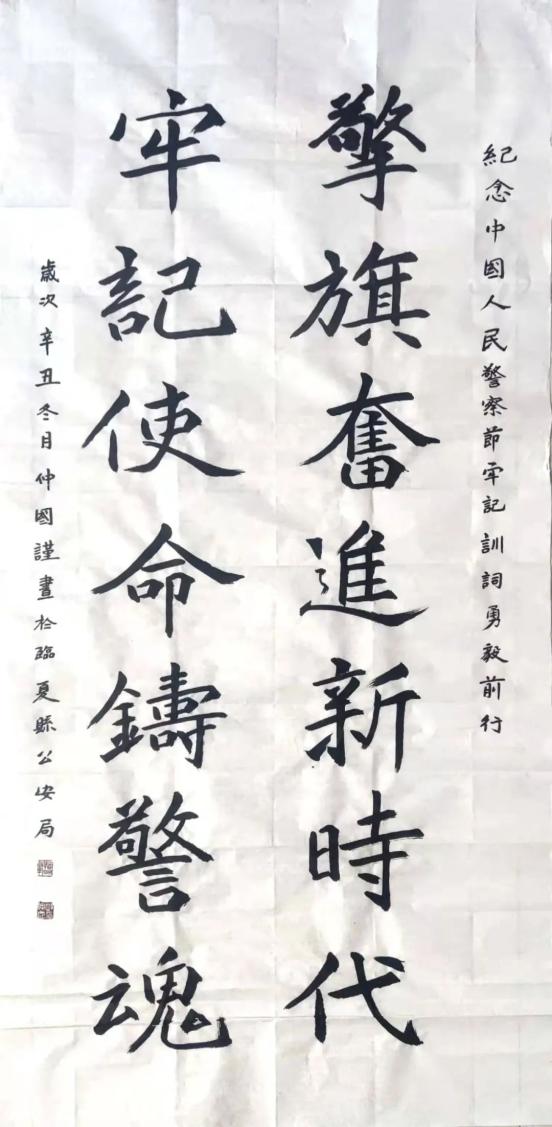 紀念中國人民警察節牢記訓詞勇毅前行
擎旗奮進新時代
牢記使命鑄警魂
歲次辛丑冬月仲國謹書於臨夏縣公安局